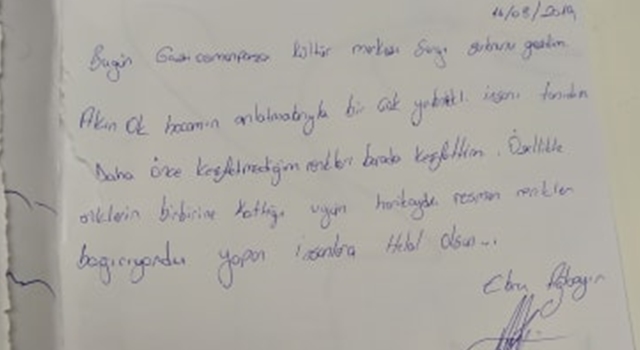 16/08/2019
Bugün Gaziosmanpaşa kültür merkezi Sergi salonunu gezdim.
Akın Ok hocamın anlatmalarıyla bir çok yetenekli insanı tanıdım
Daha önce Keşfetmediğim renkleri burada keşfettim. Özellikle
renklerin birbirine Kattığı uyum harikaydı resmen renkler
bağırıyordu yapan insanlara Helal Olsun...
Ebru